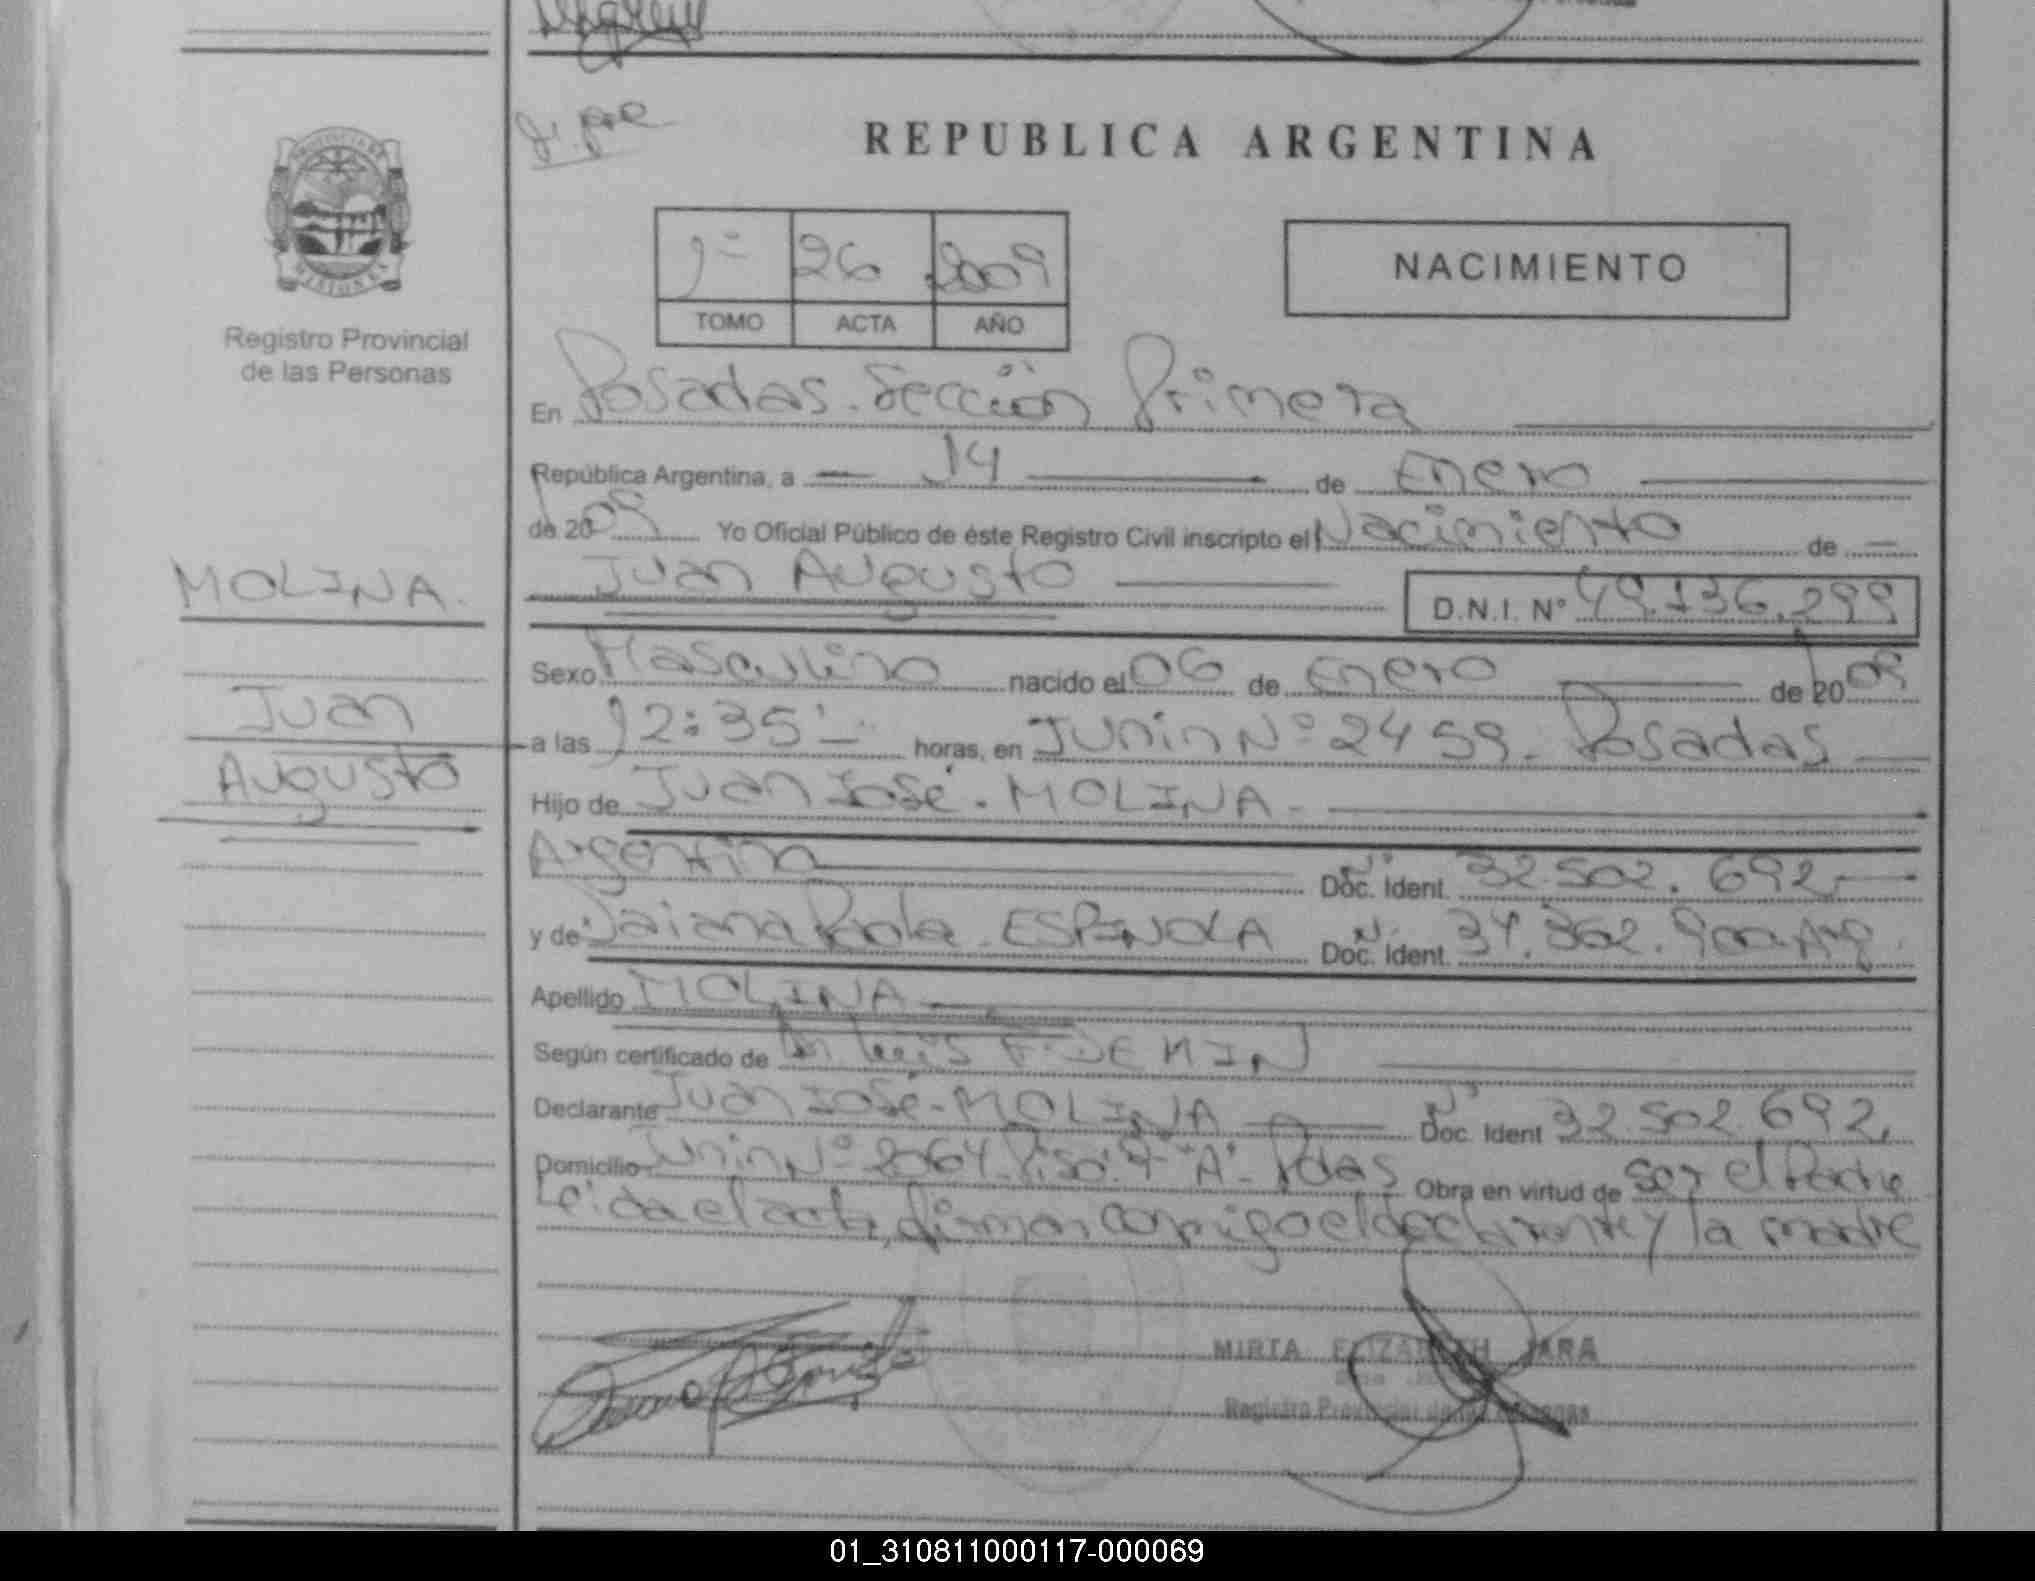 REPUBLICA ARGENTINA
1º 26 2009
TOMO ACTA AÑO
NACIMIENTO
PROVINCIA DE
MISIONES
Registro Provincial
de las Personas
MOLINA.
Juan
Augusto
En Posadas. Sección Primera
República Argentina, a 14 de Enero
de 2009 Yo Oficial Público de éste Registro Civil inscripto el Nacimiento de
Juan Augusto D.N.I. Nº 49.136.299
Sexo Masculino nacido el 06 de Enero de 2009
a las 12:35'- horas, en Junin Nº 2459. Posadas
Hijo de Juan José. MOLINA-
Argentino Nº Doc. Ident. 32.502.692
y de Daiana Paola. ESPINOLA Nº Doc. Ident. 34.362.900 Arg.
Apellido MOLINA
Según certificado de Dr. Luis F. DEMIN
Declarante Juan José-MOLINA Nº Doc. Ident 32.502.692,
Domicilio Junin Nº 2064. Piso: 4 "A"- Pdas Obra en virtud de ser el Padre
Leida el acta, firman conmigo el declarante y la madre
MIRTA ELIZABETH JARA
Registro Provincial de las Personas
01_310811000117-000069